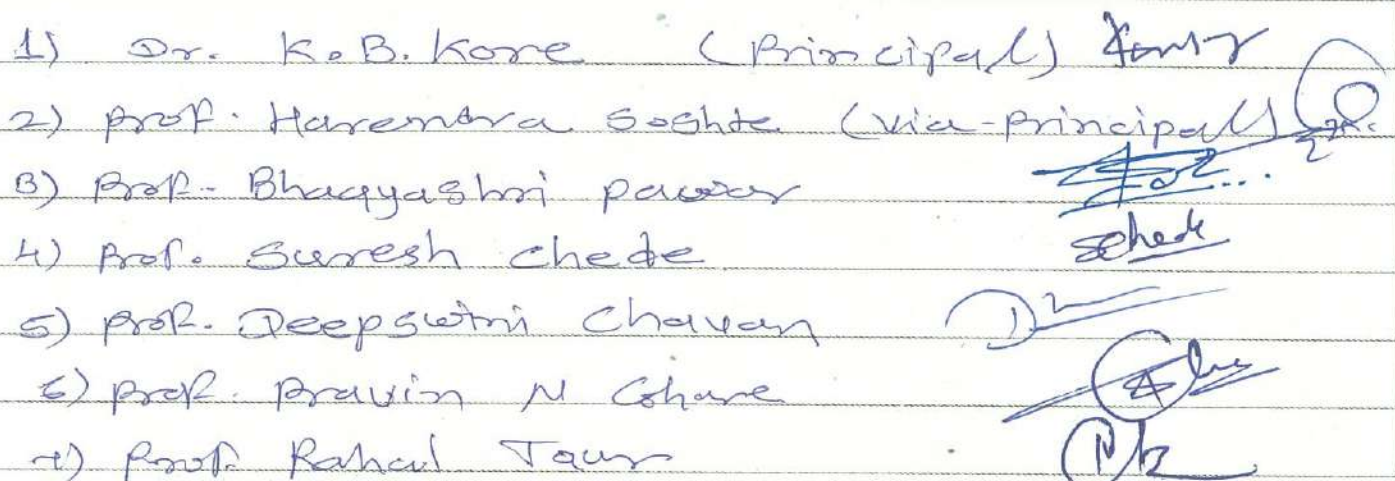 1) Dr. K.B. Kore (Principal)
2) Prof. Harendra Soshte (Vice-Principal)
3) Prof. Bhagyashri Pawar
4) Prof. Suresh Chede Schede
5) Prof. Chavan
6) Prof. Pravin N Ghare
7) Prof. Rahul Taur